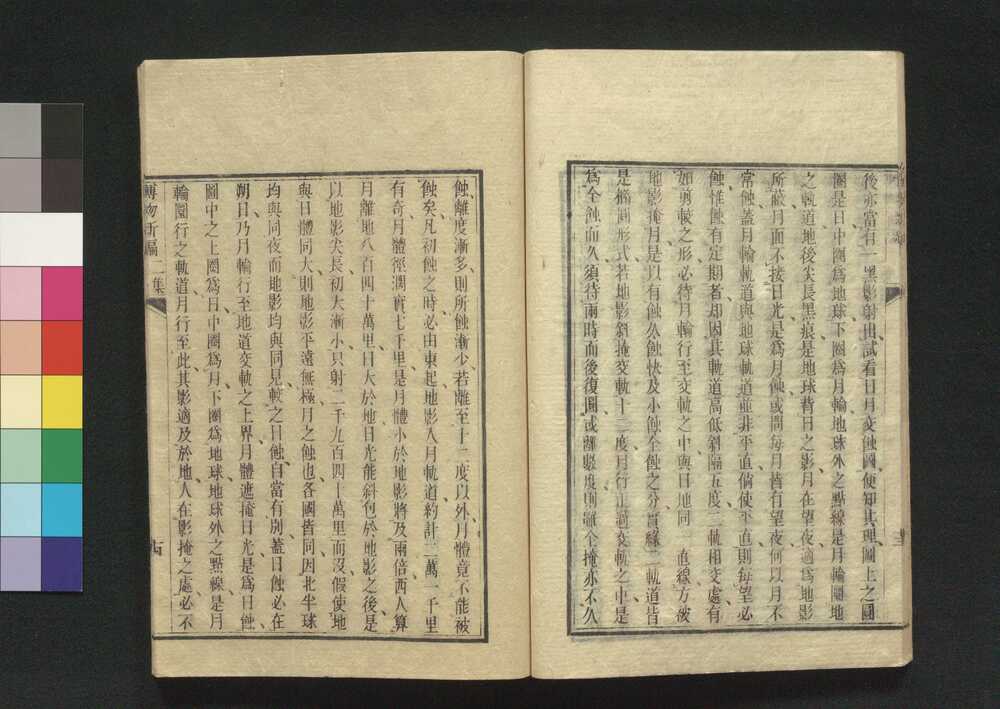 後亦當有一黑影射出試看日月交蝕圖便知其理圖上之圈
圈是日中圈爲地球下圈爲月輪地球外之點線是月輪圜地
之軌道地後尖長黑痕是地球背日之影月在望夜適爲地影
所蔽月面不接日光是爲月蝕或問每月皆有望夜何以月不
常蝕蓋月輪軌道與地球軌道並非平直倘使平直則每望必
蝕惟蝕有定期者却因其軌道高低斜隔五度二軌相交處有
如剪較之形必待月輪行至交軌之中與日地同一直線方被
地影掩月是以有蝕久蝕快及小蝕全蝕之分皆緣二軌道皆
是橢圓形式若地影斜掩交軌十二度月行正適交軌之中是
爲全蝕而久須待兩時而後復圓或離數度則雖全掩亦不久
蝕離度漸多則所蝕漸少若離至十二度以外月體竟不能被
蝕矣凡初蝕之時必由東起地影入月軌道約計二萬一千里
有奇月體徑濶實七千里是月體小於地影將及兩倍西人算
月離地八百四十萬里日大於地日光能斜包於地影之後是
以地影尖長初大漸小只射二千九百四十萬里而沒假使地
與日體同大則地影平遠無極月之蝕也各國皆同因北半球
均與同夜而地影均與同見較之日蝕自當有別蓋日蝕必在
朔日乃月輪行至地道交軌之上界月體遮掩日光是爲日蝕
圖中之上圈爲日中圈爲月下圈爲地球地球外之點線是月
輪圜行之軌道月行至此其影適及於地人在影掩之處必不
博物新編二集
十四